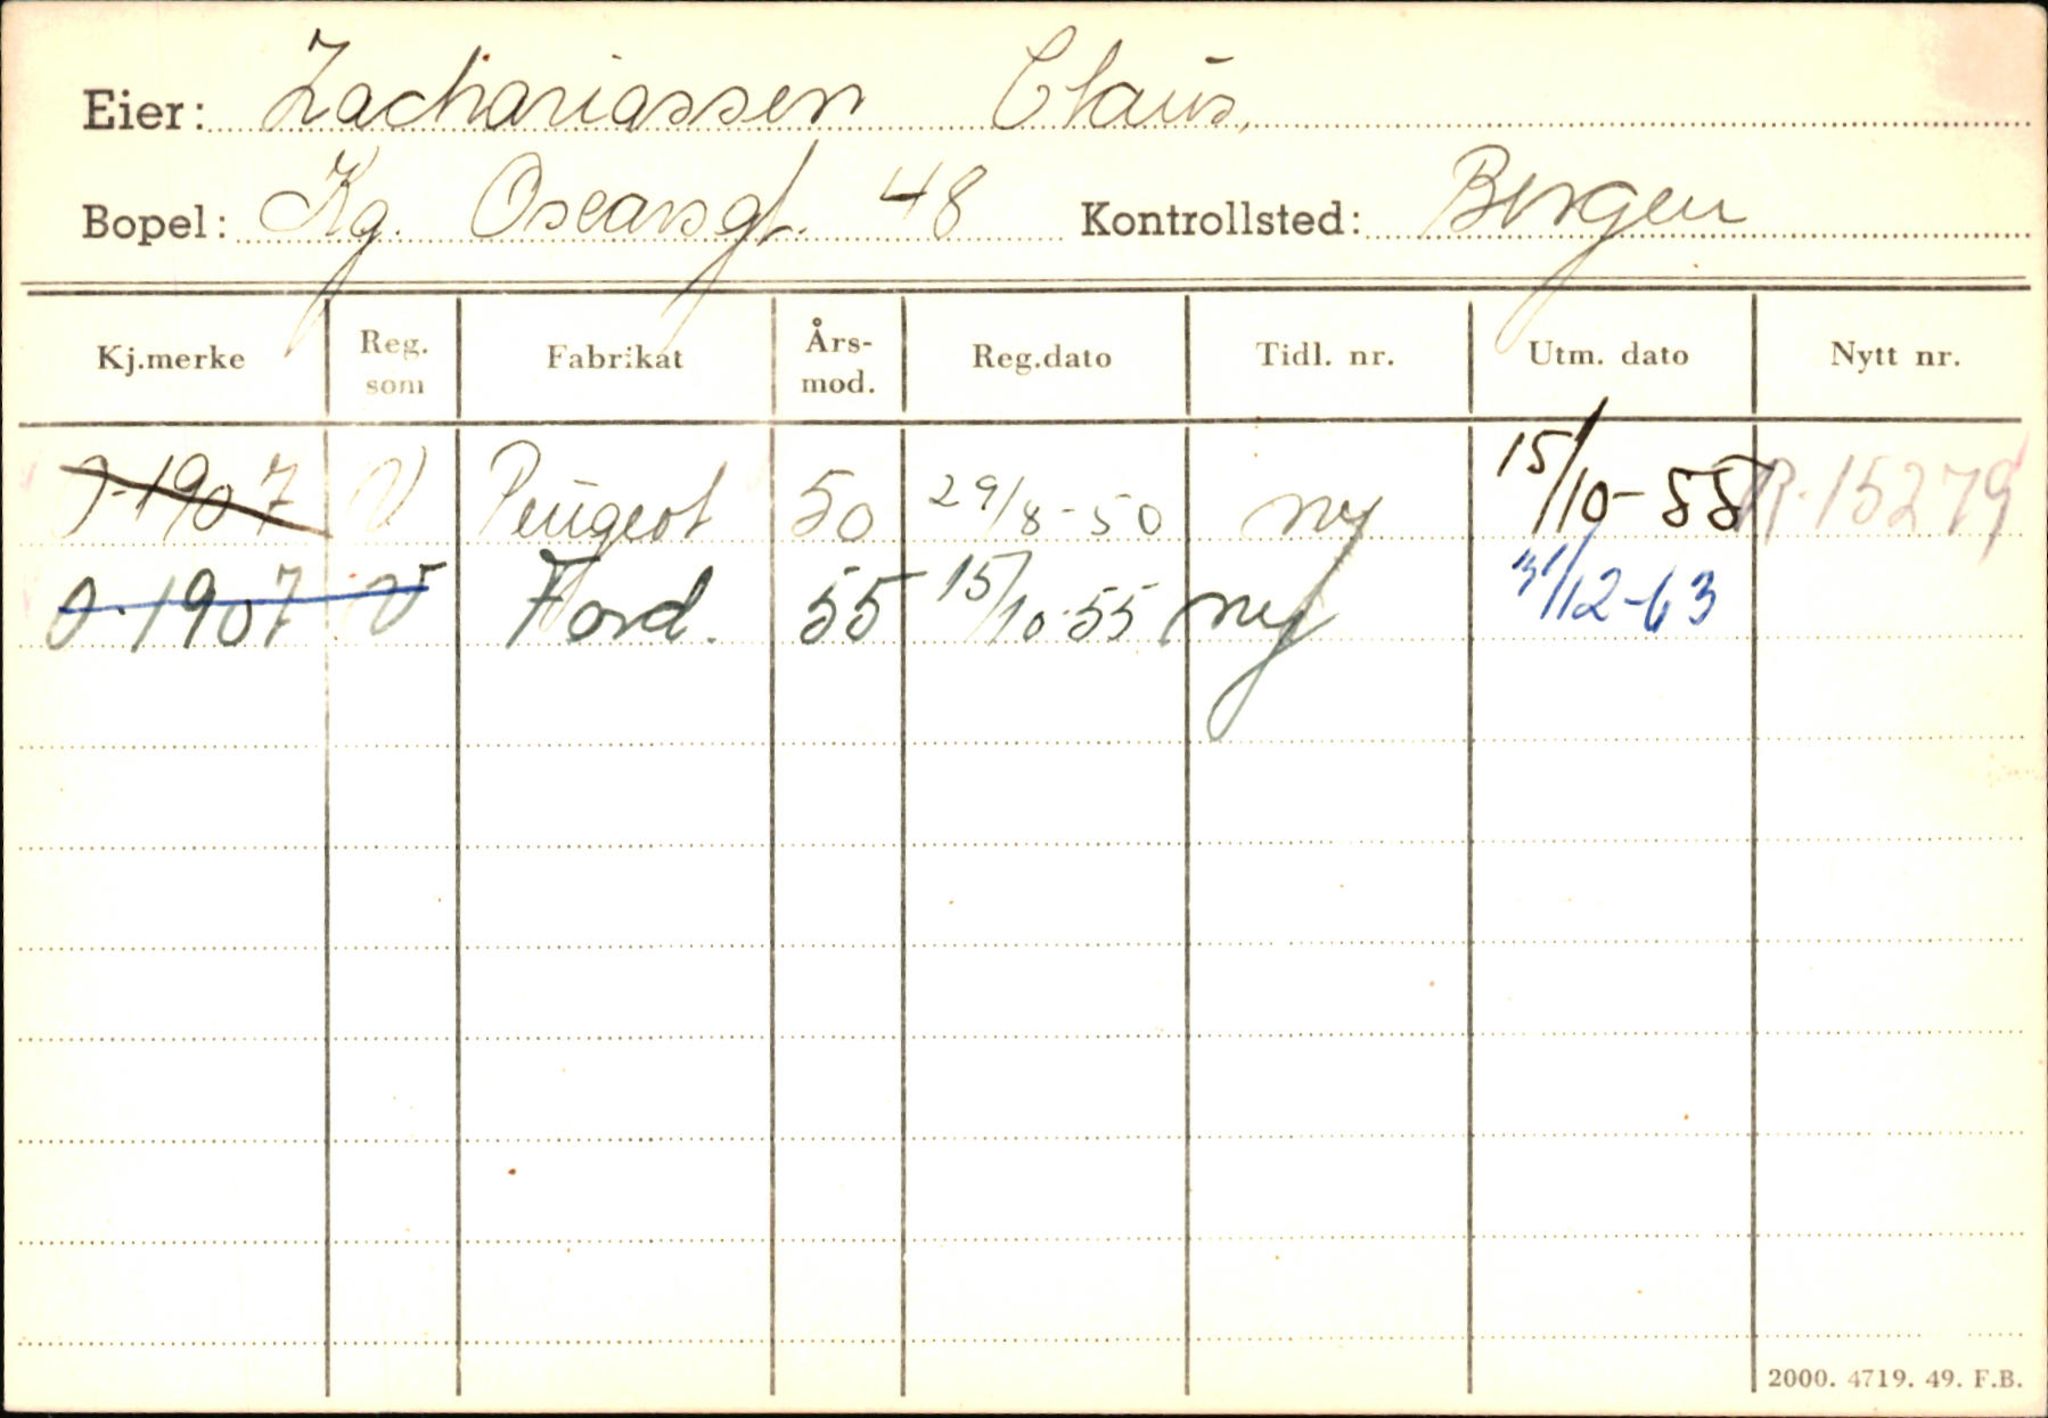 Eier: Zachariassen Claus.
Bopel: Kg. Oscarsgt. 48 Kontrollsted: Bergen
Kj.merke Reg. som Fabrikat Års-mod. Reg.dato Tidl. nr. Utm. dato Nytt nr.
O-1907 V Peugeot 50 29/8-50 ny 15/10-55 R-15279
O-1907 V Ford. 55 15/10-55 ny 31/12-63
2000. 4719. 49. F.B.